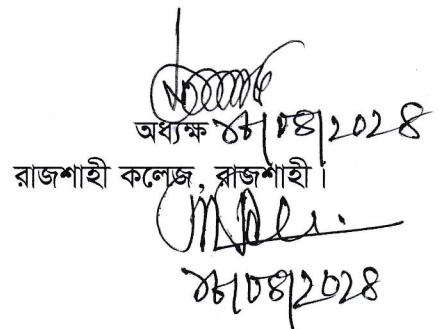 অধ্যক্ষ ১৮|০৪|২০২৪
রাজশাহী কলেজ, রাজশাহী।
১৮|০৪|২০২৪